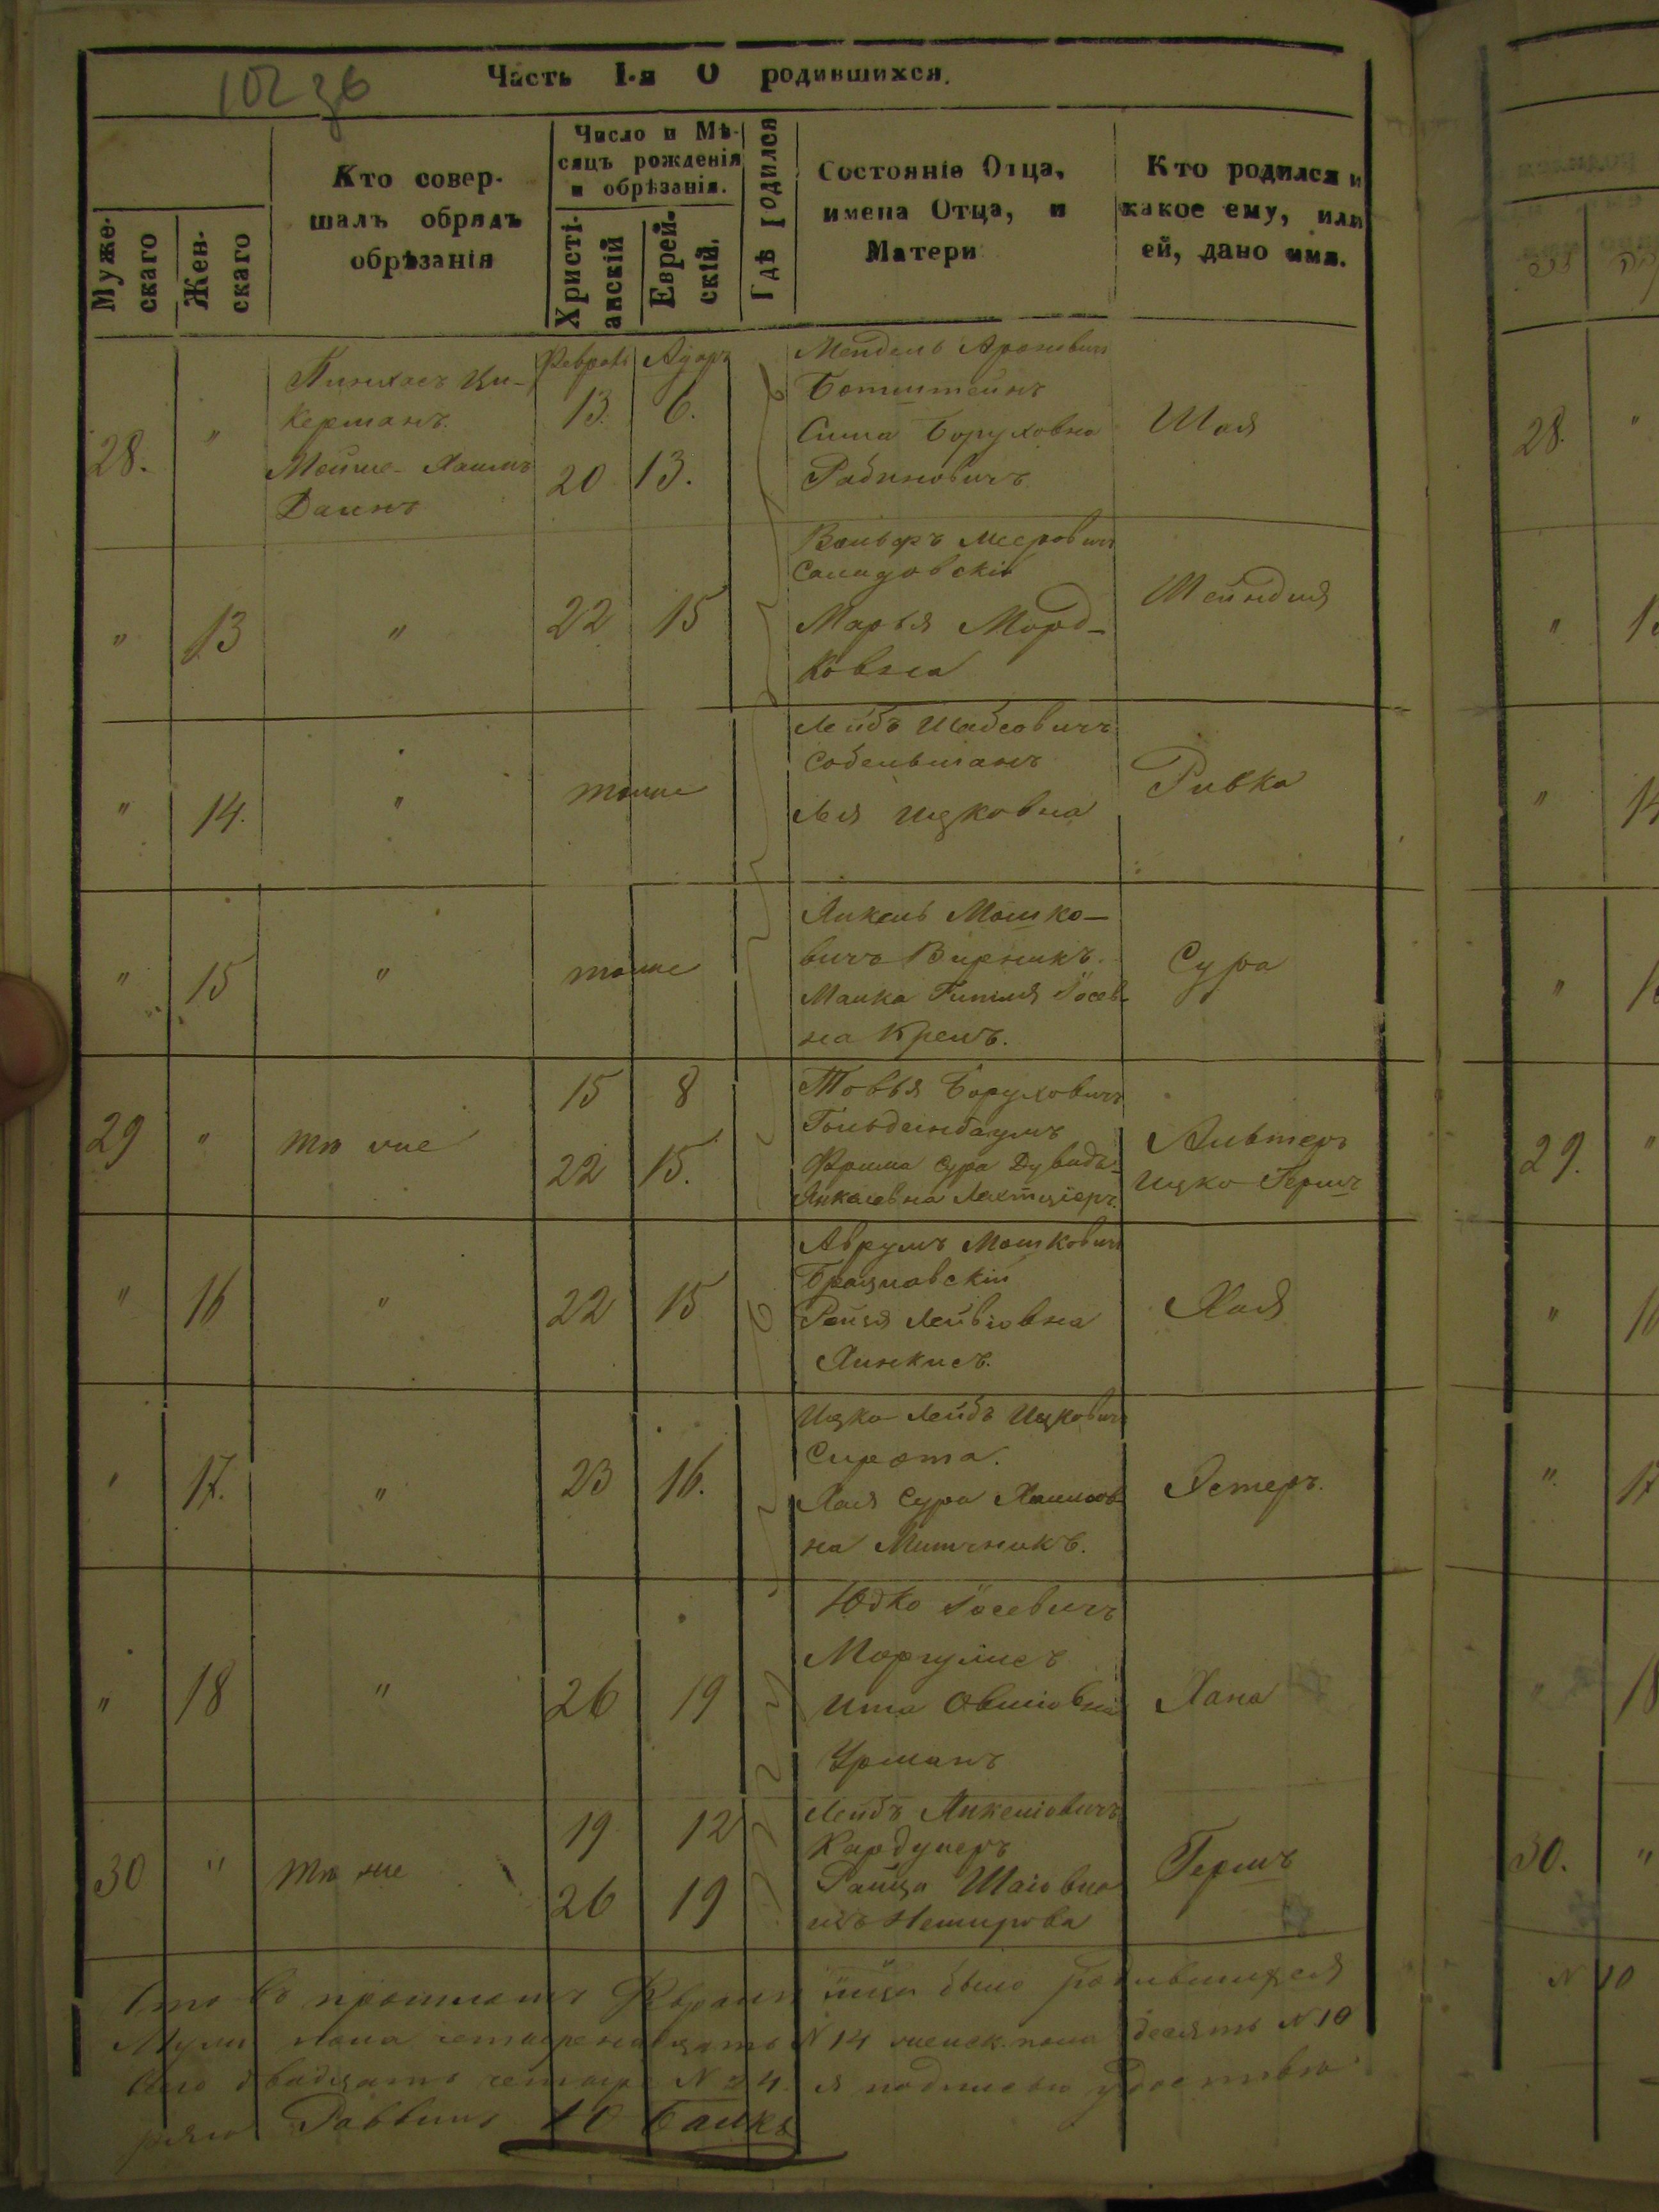 102 зв
Часть I-я О родившихся.
Муже-
скаго
Жен-
скаго
Кто совер-
шалъ обрядъ
обрѣзанія
Число и Мѣ-
сяцъ рожденія
и обрѣзанія.
Христі-
анскій
Еврей-
скій.
Гдѣ родился
Состояніе Отца,
имена Отца, и
Матери
Кто родился и
какое ему, или
ей, дано имя.
28.
"
Пинхасъ Ци-
керманъ.
Мойше-Хаимъ
Даинъ
Февраль Адаръ
13. 6.
20 13.
Мендель Ароновичъ
Ботштейнъ
Сима Боруховна
Рабиновичъ
Шая
" 13 " 22 15
Вольфъ Мееровичъ
Марья Морд-
ковна
Шейндля
" 14. " тоже
Лейбъ Шабсовичъ
Собельманъ
Лея Ицковна
Ривка
" 15 " тоже
Янкель Мошко-
вичъ Вирникъ.
Малка Гитля Іосев-
на Крель.
Сура
29 " тѣ же
15 8
22 15.
Товья Боруховичъ
Гольденбаумъ
Фрима Сура Дувидъ-
Янкелевна
Альтеръ
Ицко-Гершъ
" 16 " 22 15
Аврумъ Мошковичъ
Брацлавскій
Рейзя Лейбіовна
Хинкисъ.
Хая
" 17. " 23 16.
Ицко Лейбъ Ицковичъ
Сирота.
Хая Сура Хаимов-
на Митникъ.
Эстеръ.
" 18 " 26 19
Юдко Іосевичъ
Моргулисъ
Ита Овшіовна
Урманъ
Хана
30 " тѣ же
19 12
26 19
Лейбъ Янкеліовичъ
Кардунеръ
Раица Шаіовна
изъ Немирова
Гершъ
Что въ прошломъ Февралѣ мцѣ было родившихся
Муж. пола четырнадцать N 14 женск. пола десять N 10
Всего двадцать четыре N 24. я подписью удостовѣ-
ряю Раввинъ
28. "
" 14
29. "
" 17
" 18
30. "
N 10